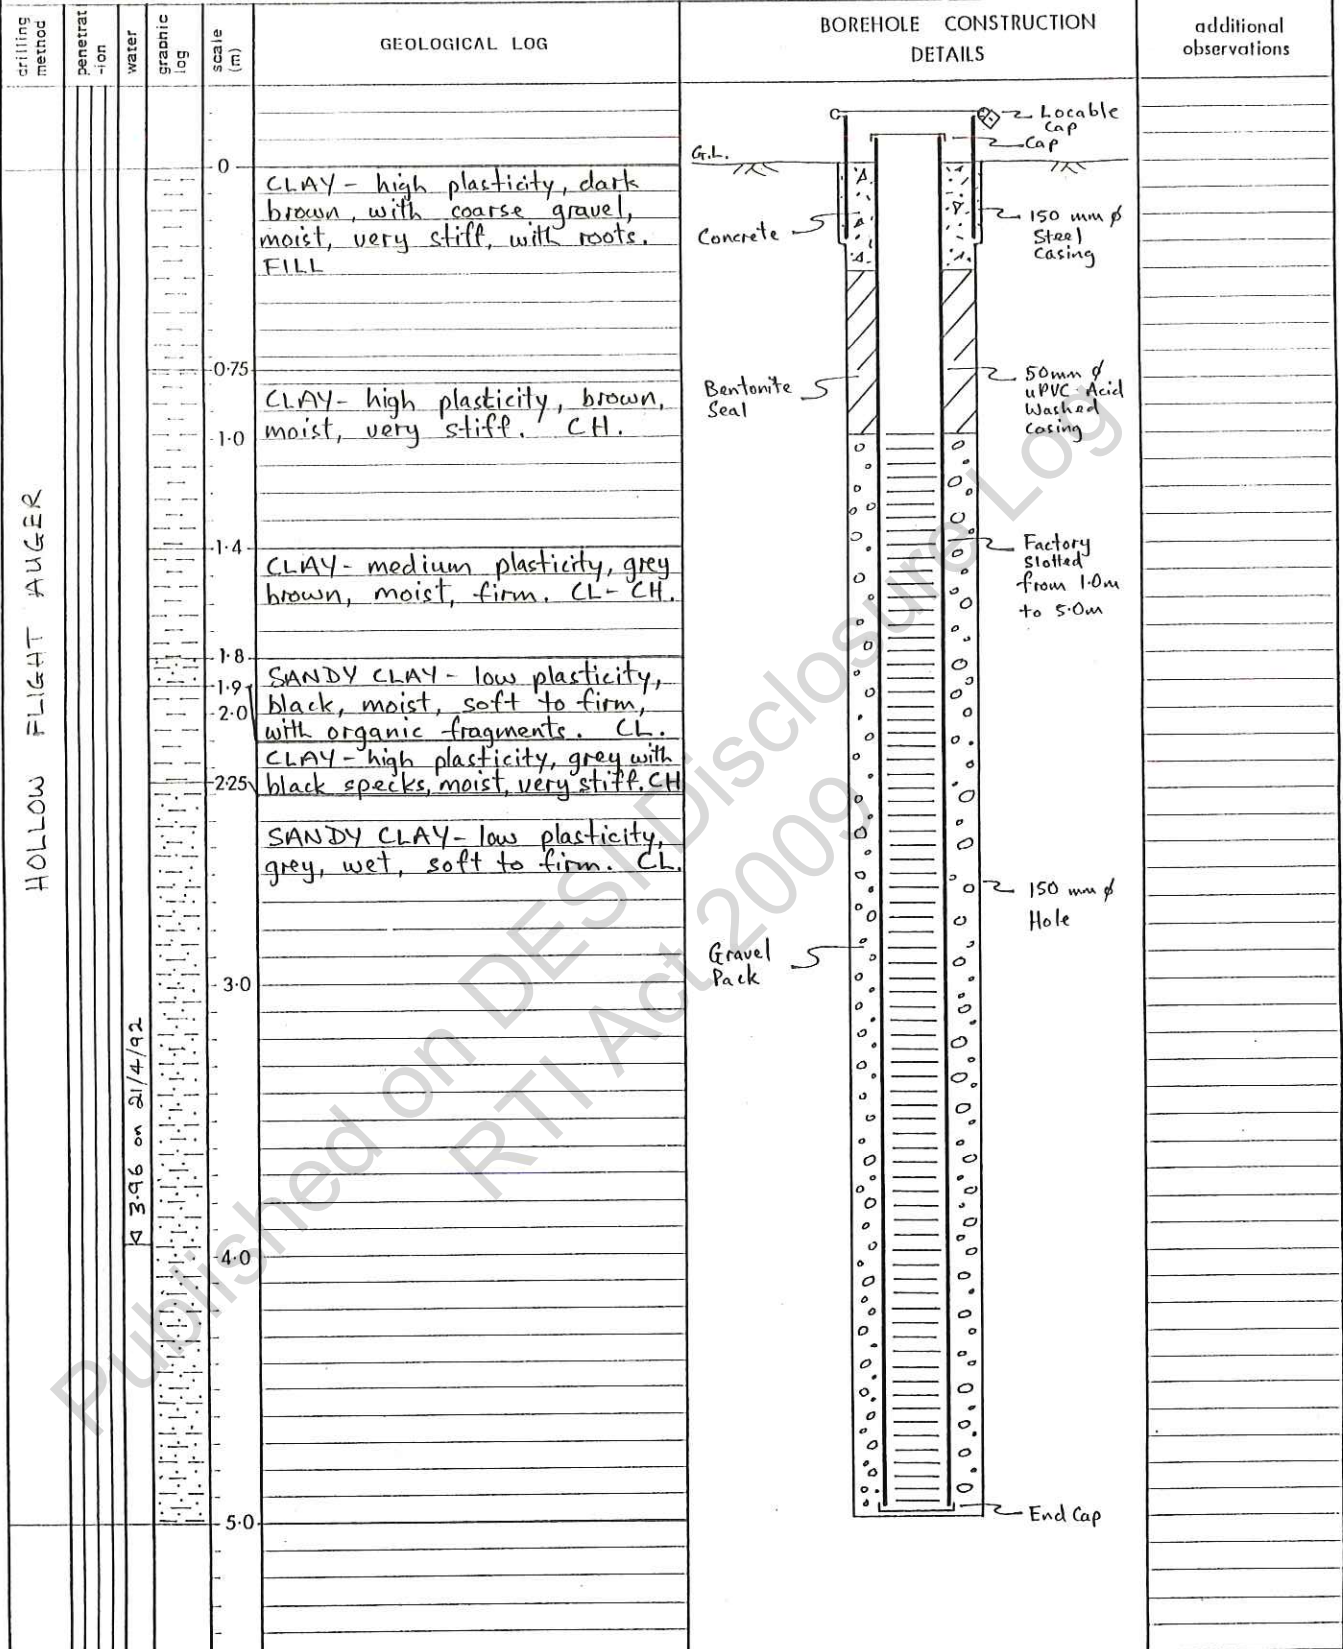 drilling
method
penetrat
-ion
water
graphic
log
scale
(m)
GEOLOGICAL LOG
BOREHOLE CONSTRUCTION
DETAILS
additional
observations
HOLLOW FLIGHT AUGER
3.96 on 21/4/92
0
0.75
1.0
1.4
1.8
1.9
2.0
2.25
3.0
4.0
5.0
CLAY - high plasticity, dark
brown, with coarse gravel,
moist, very stiff, with roots.
FILL
CLAY- high plasticity, brown,
moist, very stiff. CH.
CLAY- medium plasticity, grey
brown, moist, firm. CL-CH.
SANDY CLAY - low plasticity,
black, moist, soft to firm,
with organic fragments. CL.
CLAY-high plasticity, grey with
black specks, moist, very stiff. CH
SANDY CLAY- low plasticity,
grey, wet, soft to firm. CL.
G.L.
Locable
Cap
Cap
Concrete
150 mm ϕ
Steel
Casing
Bentonite
Seal
50mm ϕ
uPVC Acid
Washed
Casing
Factory
Slotted
from 1.0m
to 5.0m
150 mm ϕ
Hole
Gravel
Pack
End Cap
Published on DESI Disclosure Log
RTI Act 2009